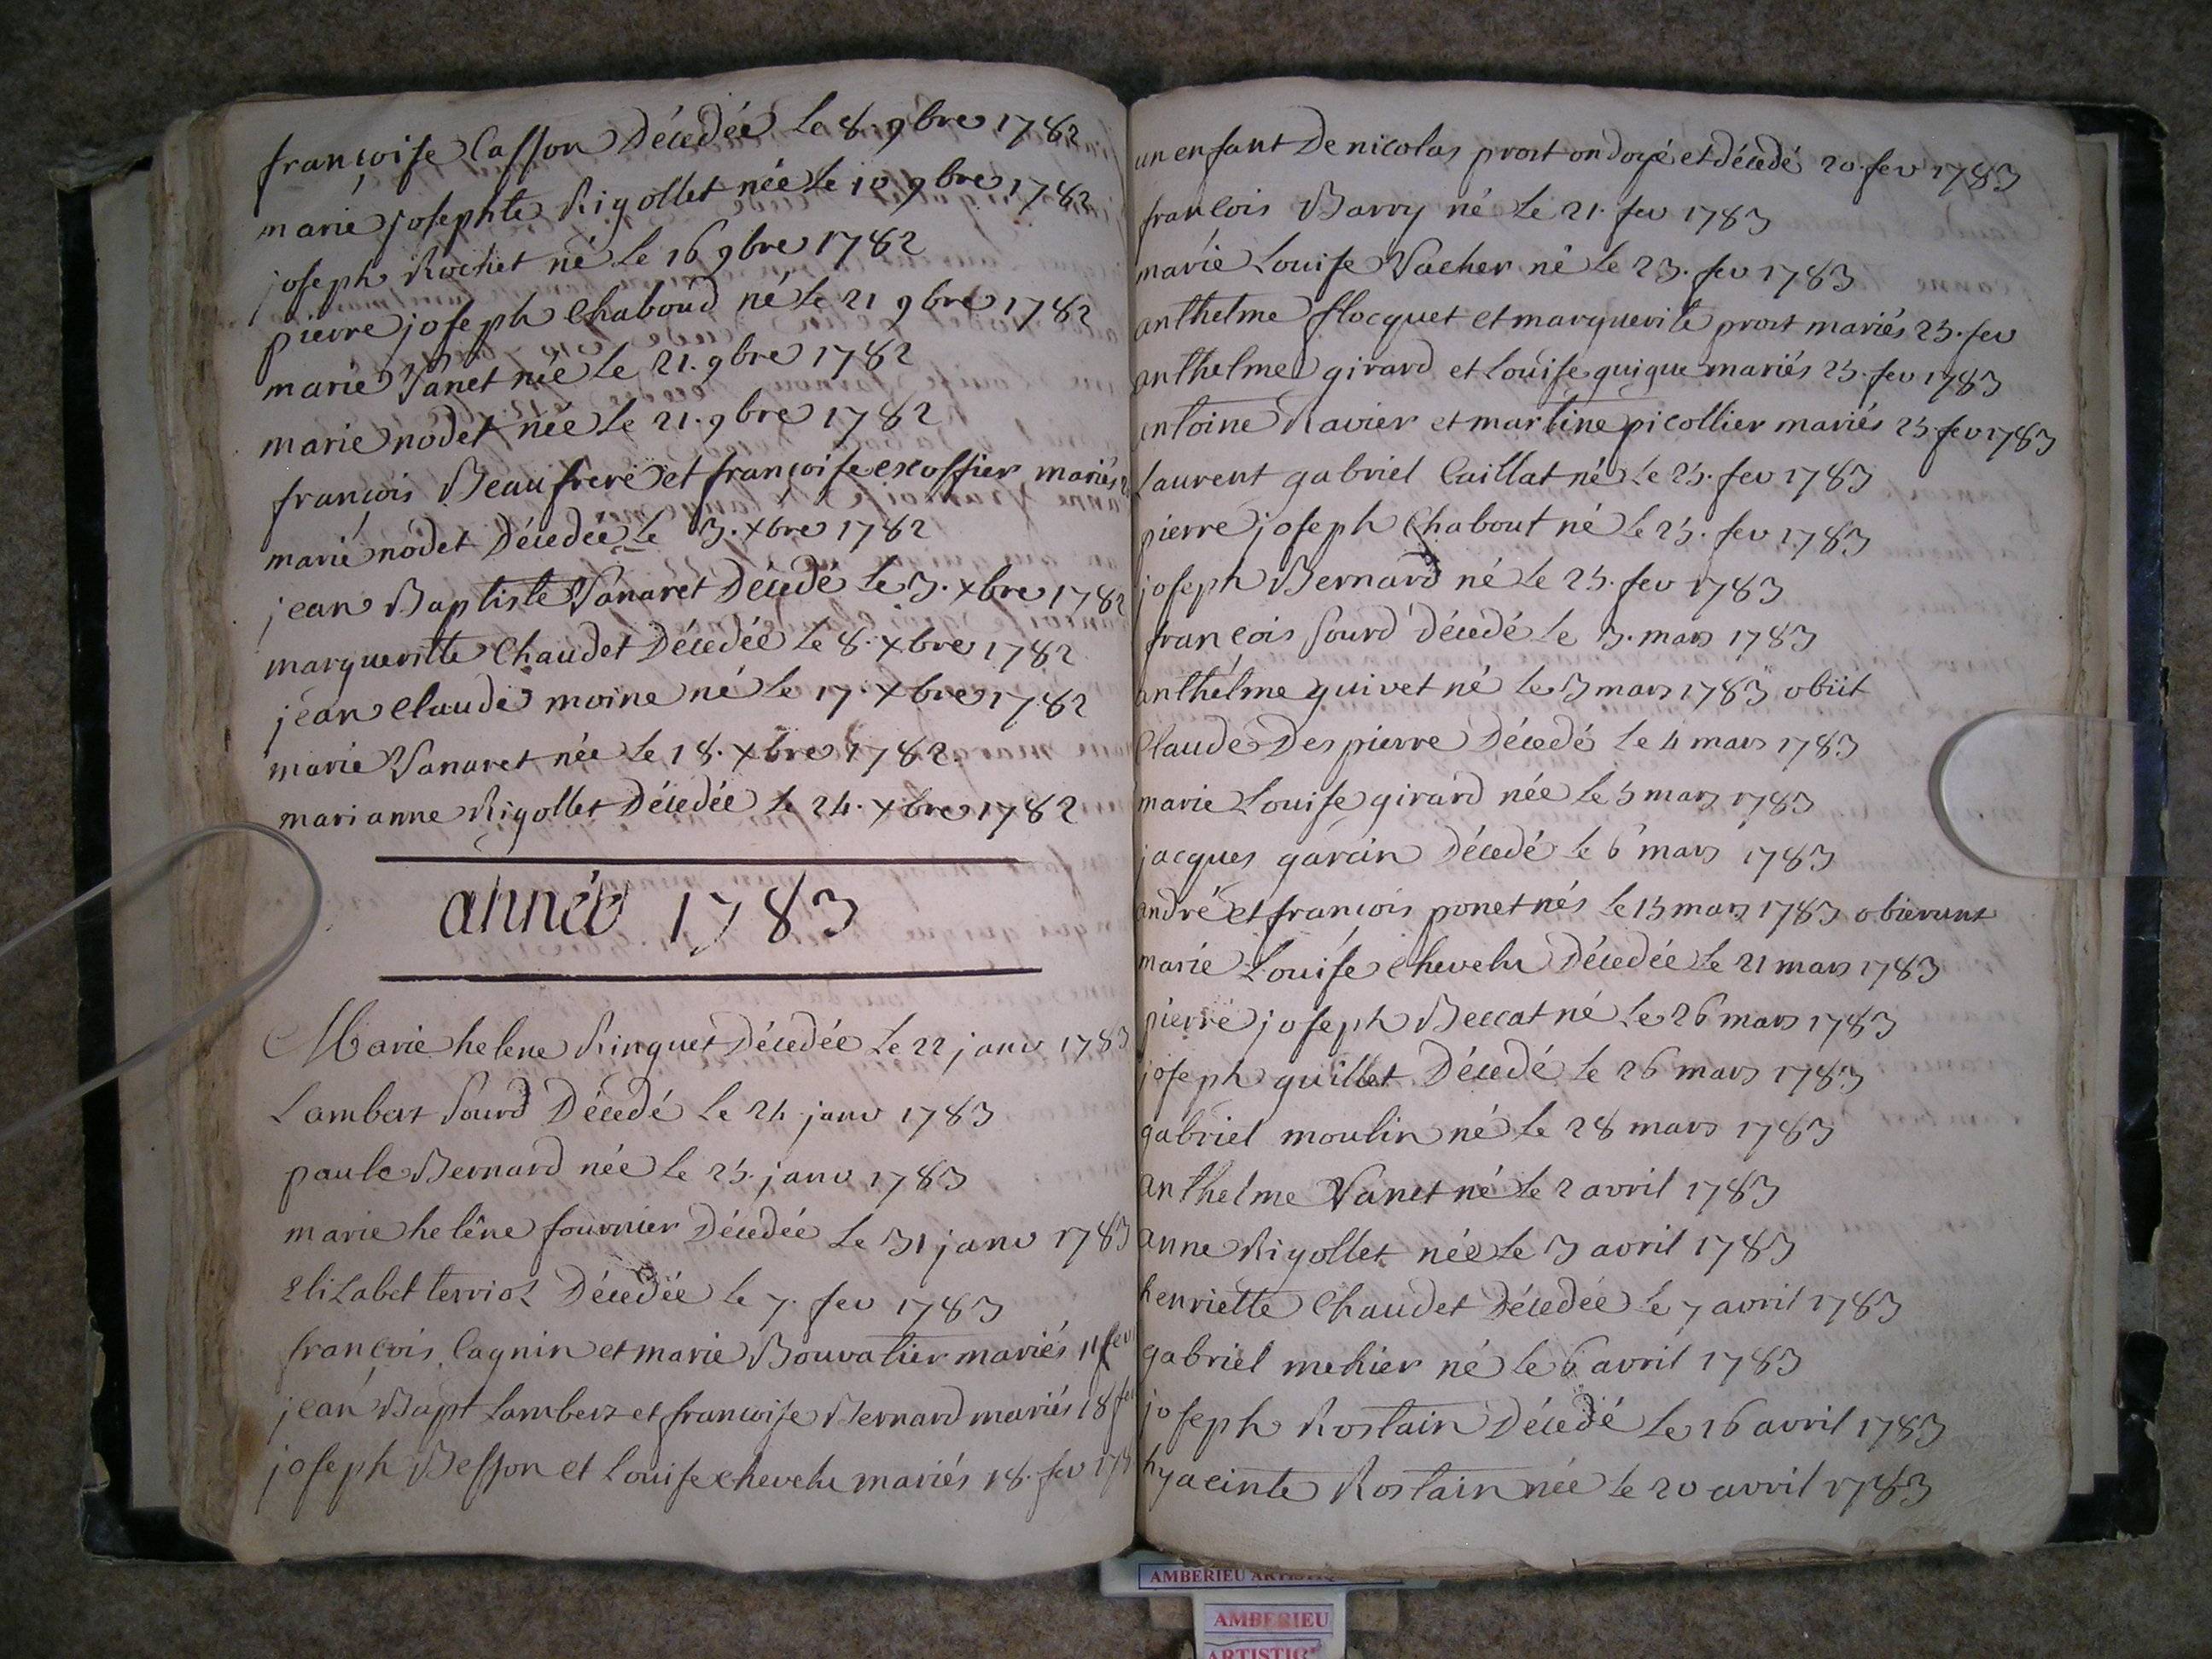 françoise Casson Décédée Le 8. 9bre 1782
marie josephte Rigollet née Le 10 9bre 1782
joseph Rochet né Le 16 9bre 1782
pierre joseph Chaboud né Le 21 9bre 1782
marie Vanet née Le 21. 9bre 1782
marie nodet née Le 21. 9bre 1782
françois Beaufrere et françoise exoffier mariés
marie nodet Décédée Le 3. xbre 1782
jean Baptiste Vanaret Décédé Le 3. xbre 1782
margueritte Chaudet Décédée Le 8. xbre 1782
jean Claude moine né Le 17. xbre 1782
marie Vanaret née Le 18. xbre 1782
marianne Rigollet Décédée Le 24. xbre 1782
année 1783
Marie helene Ringuet Décédée Le 22 janv 1783
Lambert Sourd Décédé Le 24 janv 1783
paule Bernard née Le 25. janv 1783
marie helène fournier Décédée Le 31 janv 1783
Elizabet terriot Décédée Le 7. fev 1783
françois Cagnin et marie Bouvatier mariés 11 fev
jean Bapt Lambert et françoise Bernard mariés 18 fev
joseph Besson et Louise chevelu mariés 18. fev 178
un enfant De nicolas prost ondoyé et décedé 20. fev 1783
francois Barry né Le 21. fev 1783
marie Louise Vacher né Le 23. fev 1783
anthelme flocquet et marguerite prost mariés 25. fev
anthelme girard et Louise guigue mariés 25. fev 1783
antoine Ravier et martine picollier mariés 25 fev 1783
Laurent gabriel Caillat né Le 25. fev 1783
pierre joseph Chabout né Le 25. fev 1783
joseph Bernard né Le 25. fev 1783
françois Sourd décedé Le 3. mars 1783
anthelme guivet né Le 3 mars 1783 obiit
Claude Despierre Décedé Le 4 mars 1783
marie Louise girard née Le 5 mars 1783
jacques garcin Décedé Le 6 mars 1783
andré et françois ponet nés Le 15 mars 1783 obierunt
marie Louise Chevelu Décedée Le 21 mars 1783
pierre joseph Beccat né Le 26 mars 1783
joseph guillet Décedé Le 26 mars 1783
gabriel moulin né Le 28 mars 1783
anthelme Vanet né Le 2 avril 1783
anne Rigollet née Le 3 avril 1783
henriette Chaudet Décedée Le 7 avril 1783
gabriel mehier né Le 6 avril 1783
joseph Rostain Décedé Le 16 avril 1783
hyacinte Rostain née Le 20 avril 1783
AMBERIEU
AMBERIEU
ARTISTIQ